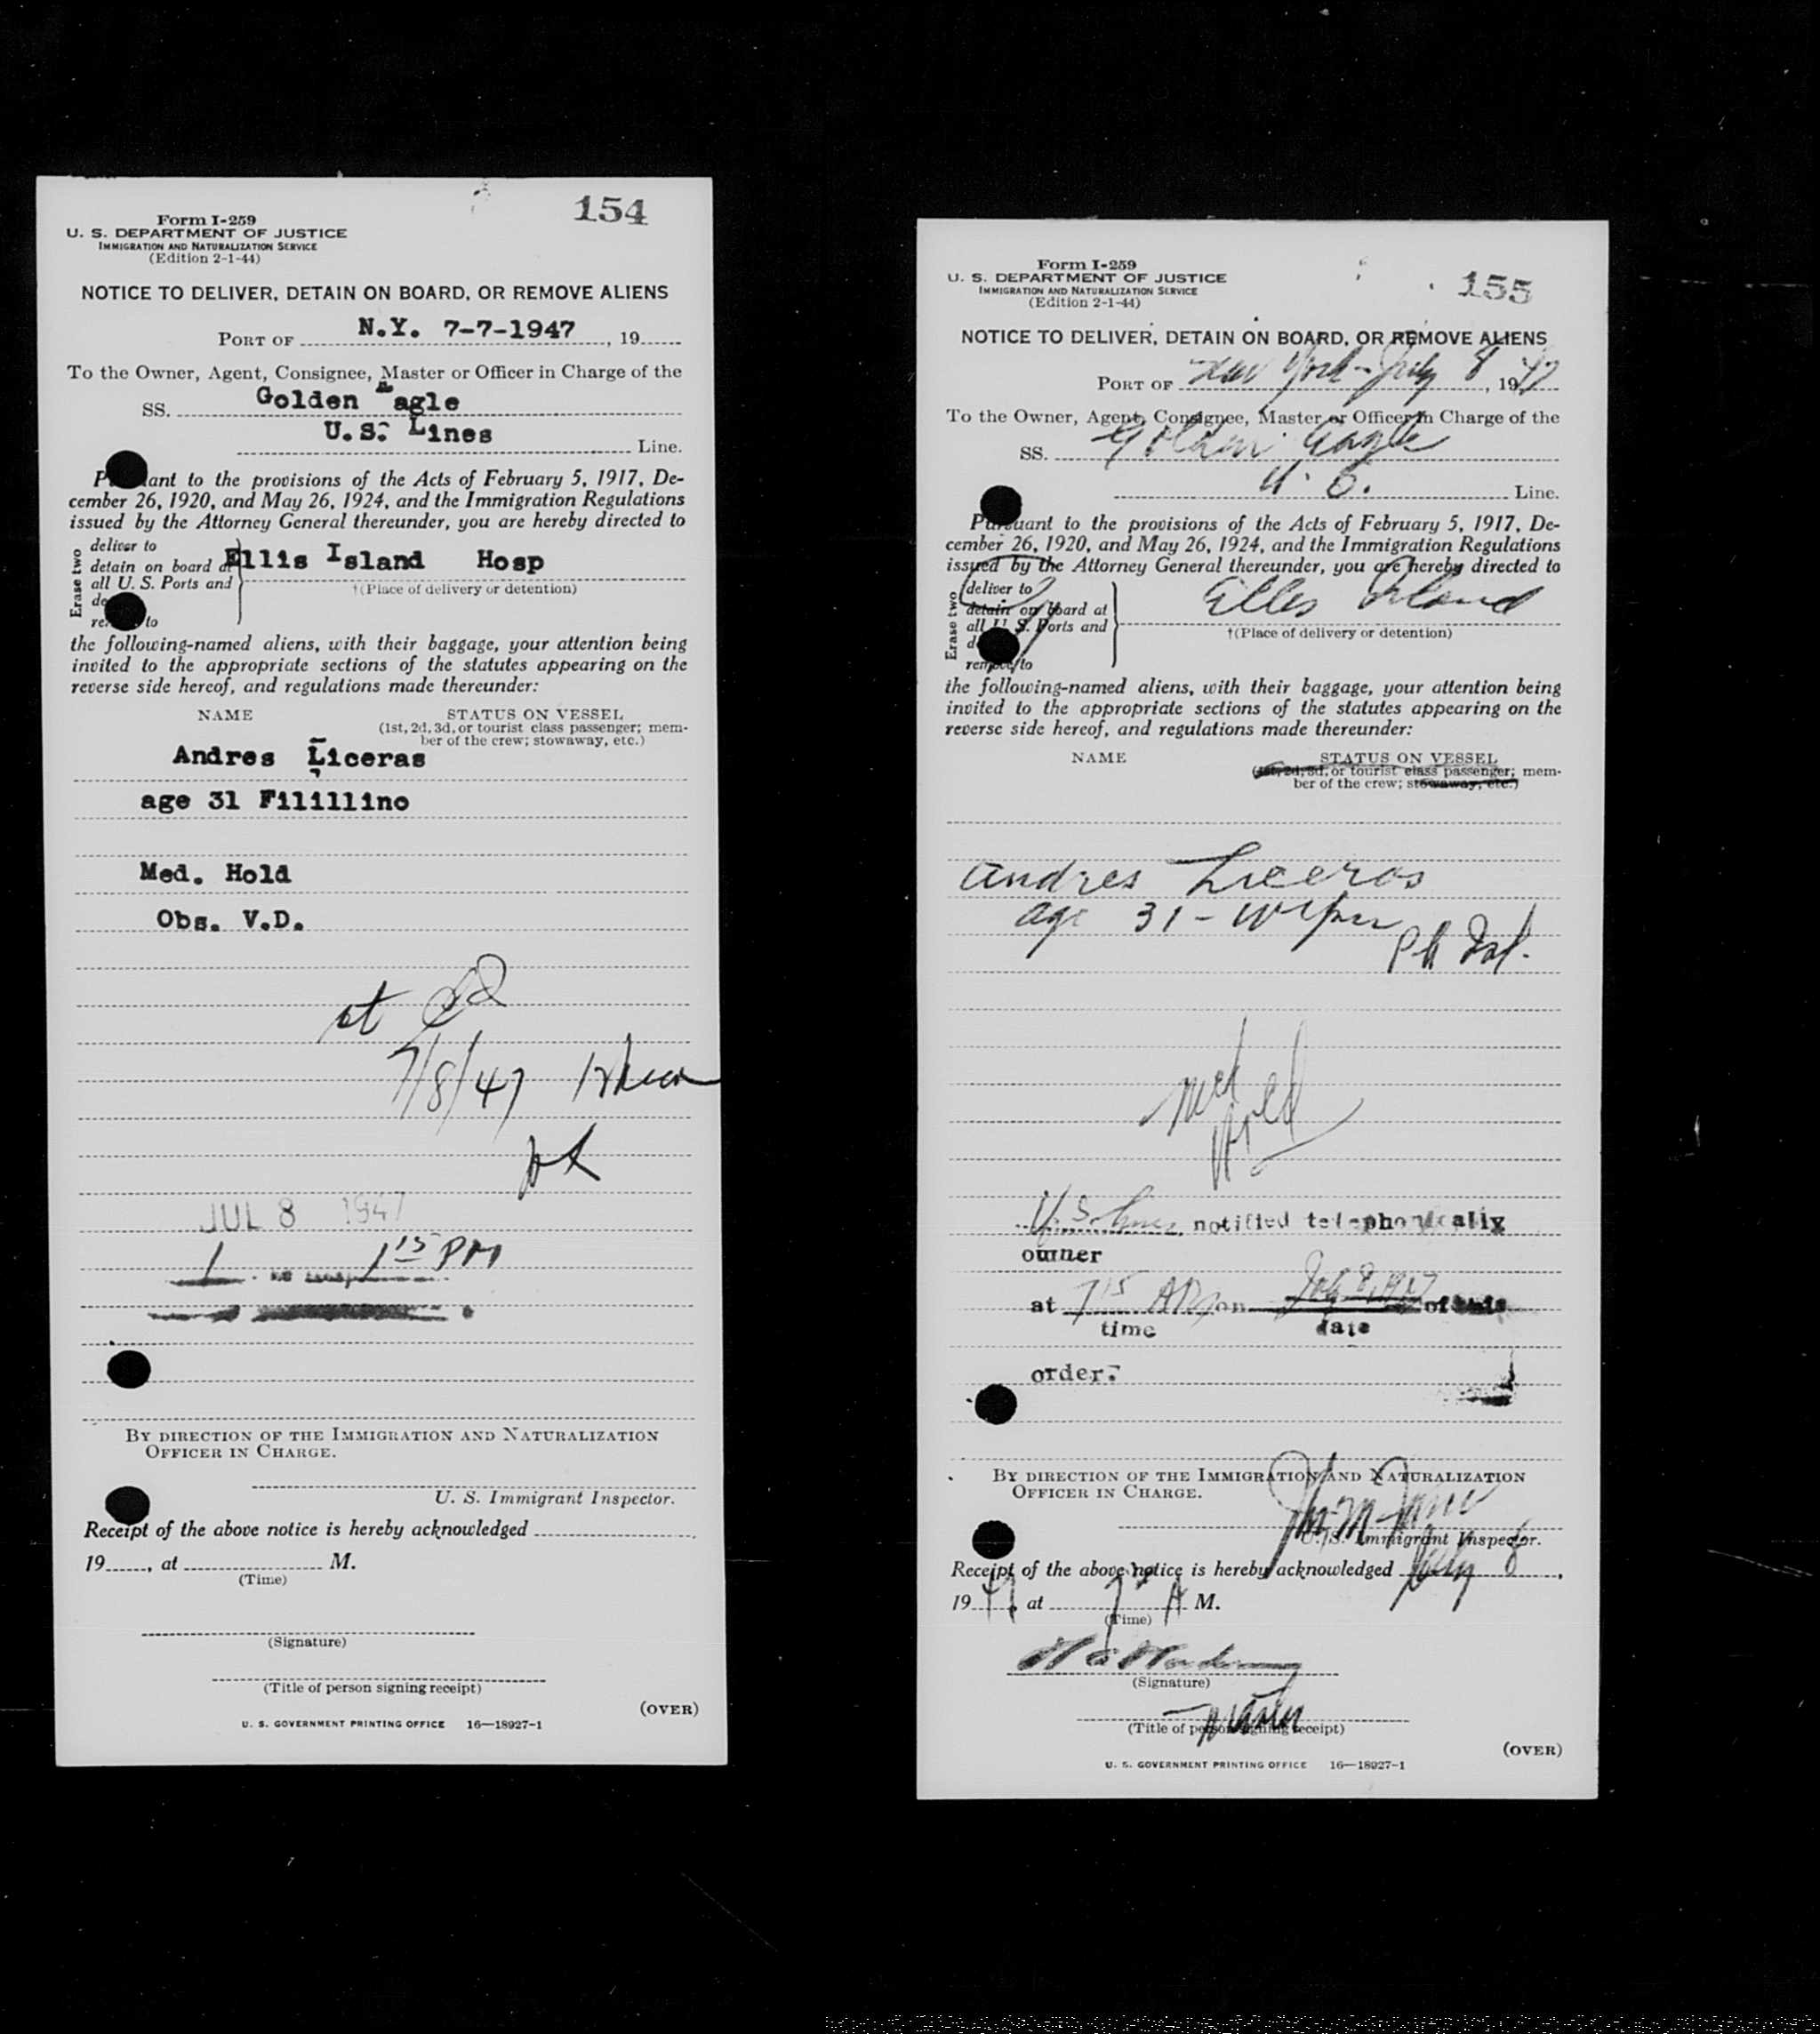 154
Form I-259
U. S. DEPARTMENT OF JUSTICE
IMMIGRATION AND NATURALIZATION SERVICE
(Edition 2-1-44)
NOTICE TO DELIVER, DETAIN ON BOARD, OR REMOVE ALIENS
PORT OF N.Y. 7-7-1947, 19
To the Owner, Agent, Consignee, Master or Officer in Charge of the
SS. Golden Eagle
U.S. Lines Line.
ant to the provisions of the Acts of February 5, 1917, De-
cember 26, 1920, and May 26, 1924, and the Immigration Regulations
issued by the Attorney General thereunder, you are hereby directed to
Erase two
deliver to
detain on board at Ellis Island Hosp
all U. S. Ports and
†(Place of delivery or detention)
to
the following-named aliens, with their baggage, your attention being
invited to the appropriate sections of the statutes appearing on the
reverse side hereof, and regulations made thereunder:
NAME STATUS ON VESSEL
(1st, 2d, 3d, or tourist class passenger; mem-
ber of the crew; stowaway, etc.)
Andres Liceras
age 31 Filillino
Med. Hold
Obs. V.D.
at
7/8/47
JUL 8 1947
1 1 15 PM
BY DIRECTION OF THE IMMIGRATION AND NATURALIZATION
OFFICER IN CHARGE.
U. S. Immigrant Inspector.
Receipt of the above notice is hereby acknowledged
19, at M.
(Time)
(Signature)
(Title of person signing receipt)
(OVER)
U. S. GOVERNMENT PRINTING OFFICE 16—18927-1
155
Form I-259
U. S. DEPARTMENT OF JUSTICE
IMMIGRATION AND NATURALIZATION SERVICE
(Edition 2-1-44)
NOTICE TO DELIVER, DETAIN ON BOARD, OR REMOVE ALIENS
PORT OF New York - July 8, 1947
To the Owner, Agent, Consignee, Master or Officer in Charge of the
SS. Golden Eagle
U. S. Line.
Pursuant to the provisions of the Acts of February 5, 1917, De-
cember 26, 1920, and May 26, 1924, and the Immigration Regulations
issued by the Attorney General thereunder, you are hereby directed to
Erase two
deliver to
detain on board at Ellis Island
all U. S. Ports and
†(Place of delivery or detention)
remove to
the following-named aliens, with their baggage, your attention being
invited to the appropriate sections of the statutes appearing on the
reverse side hereof, and regulations made thereunder:
NAME STATUS ON VESSEL
(1st, 2d, 3d, or tourist class passenger; mem-
ber of the crew; stowaway, etc.)
Andres Liceros
age 31 - Wiper
Ph Isl.
Med
Hold
U.S. Lines notified telephonically
owner
at 7 15 AM on July 8, 1947 of this
time date
order.
BY DIRECTION OF THE IMMIGRATION AND NATURALIZATION
OFFICER IN CHARGE.
U. S. Immigrant Inspector.
Receipt of the above notice is hereby acknowledged July 8,
1947, at 7 A M.
(Time)
(Signature)
Master
(Title of person signing receipt)
(OVER)
U. S. GOVERNMENT PRINTING OFFICE 16—18927-1